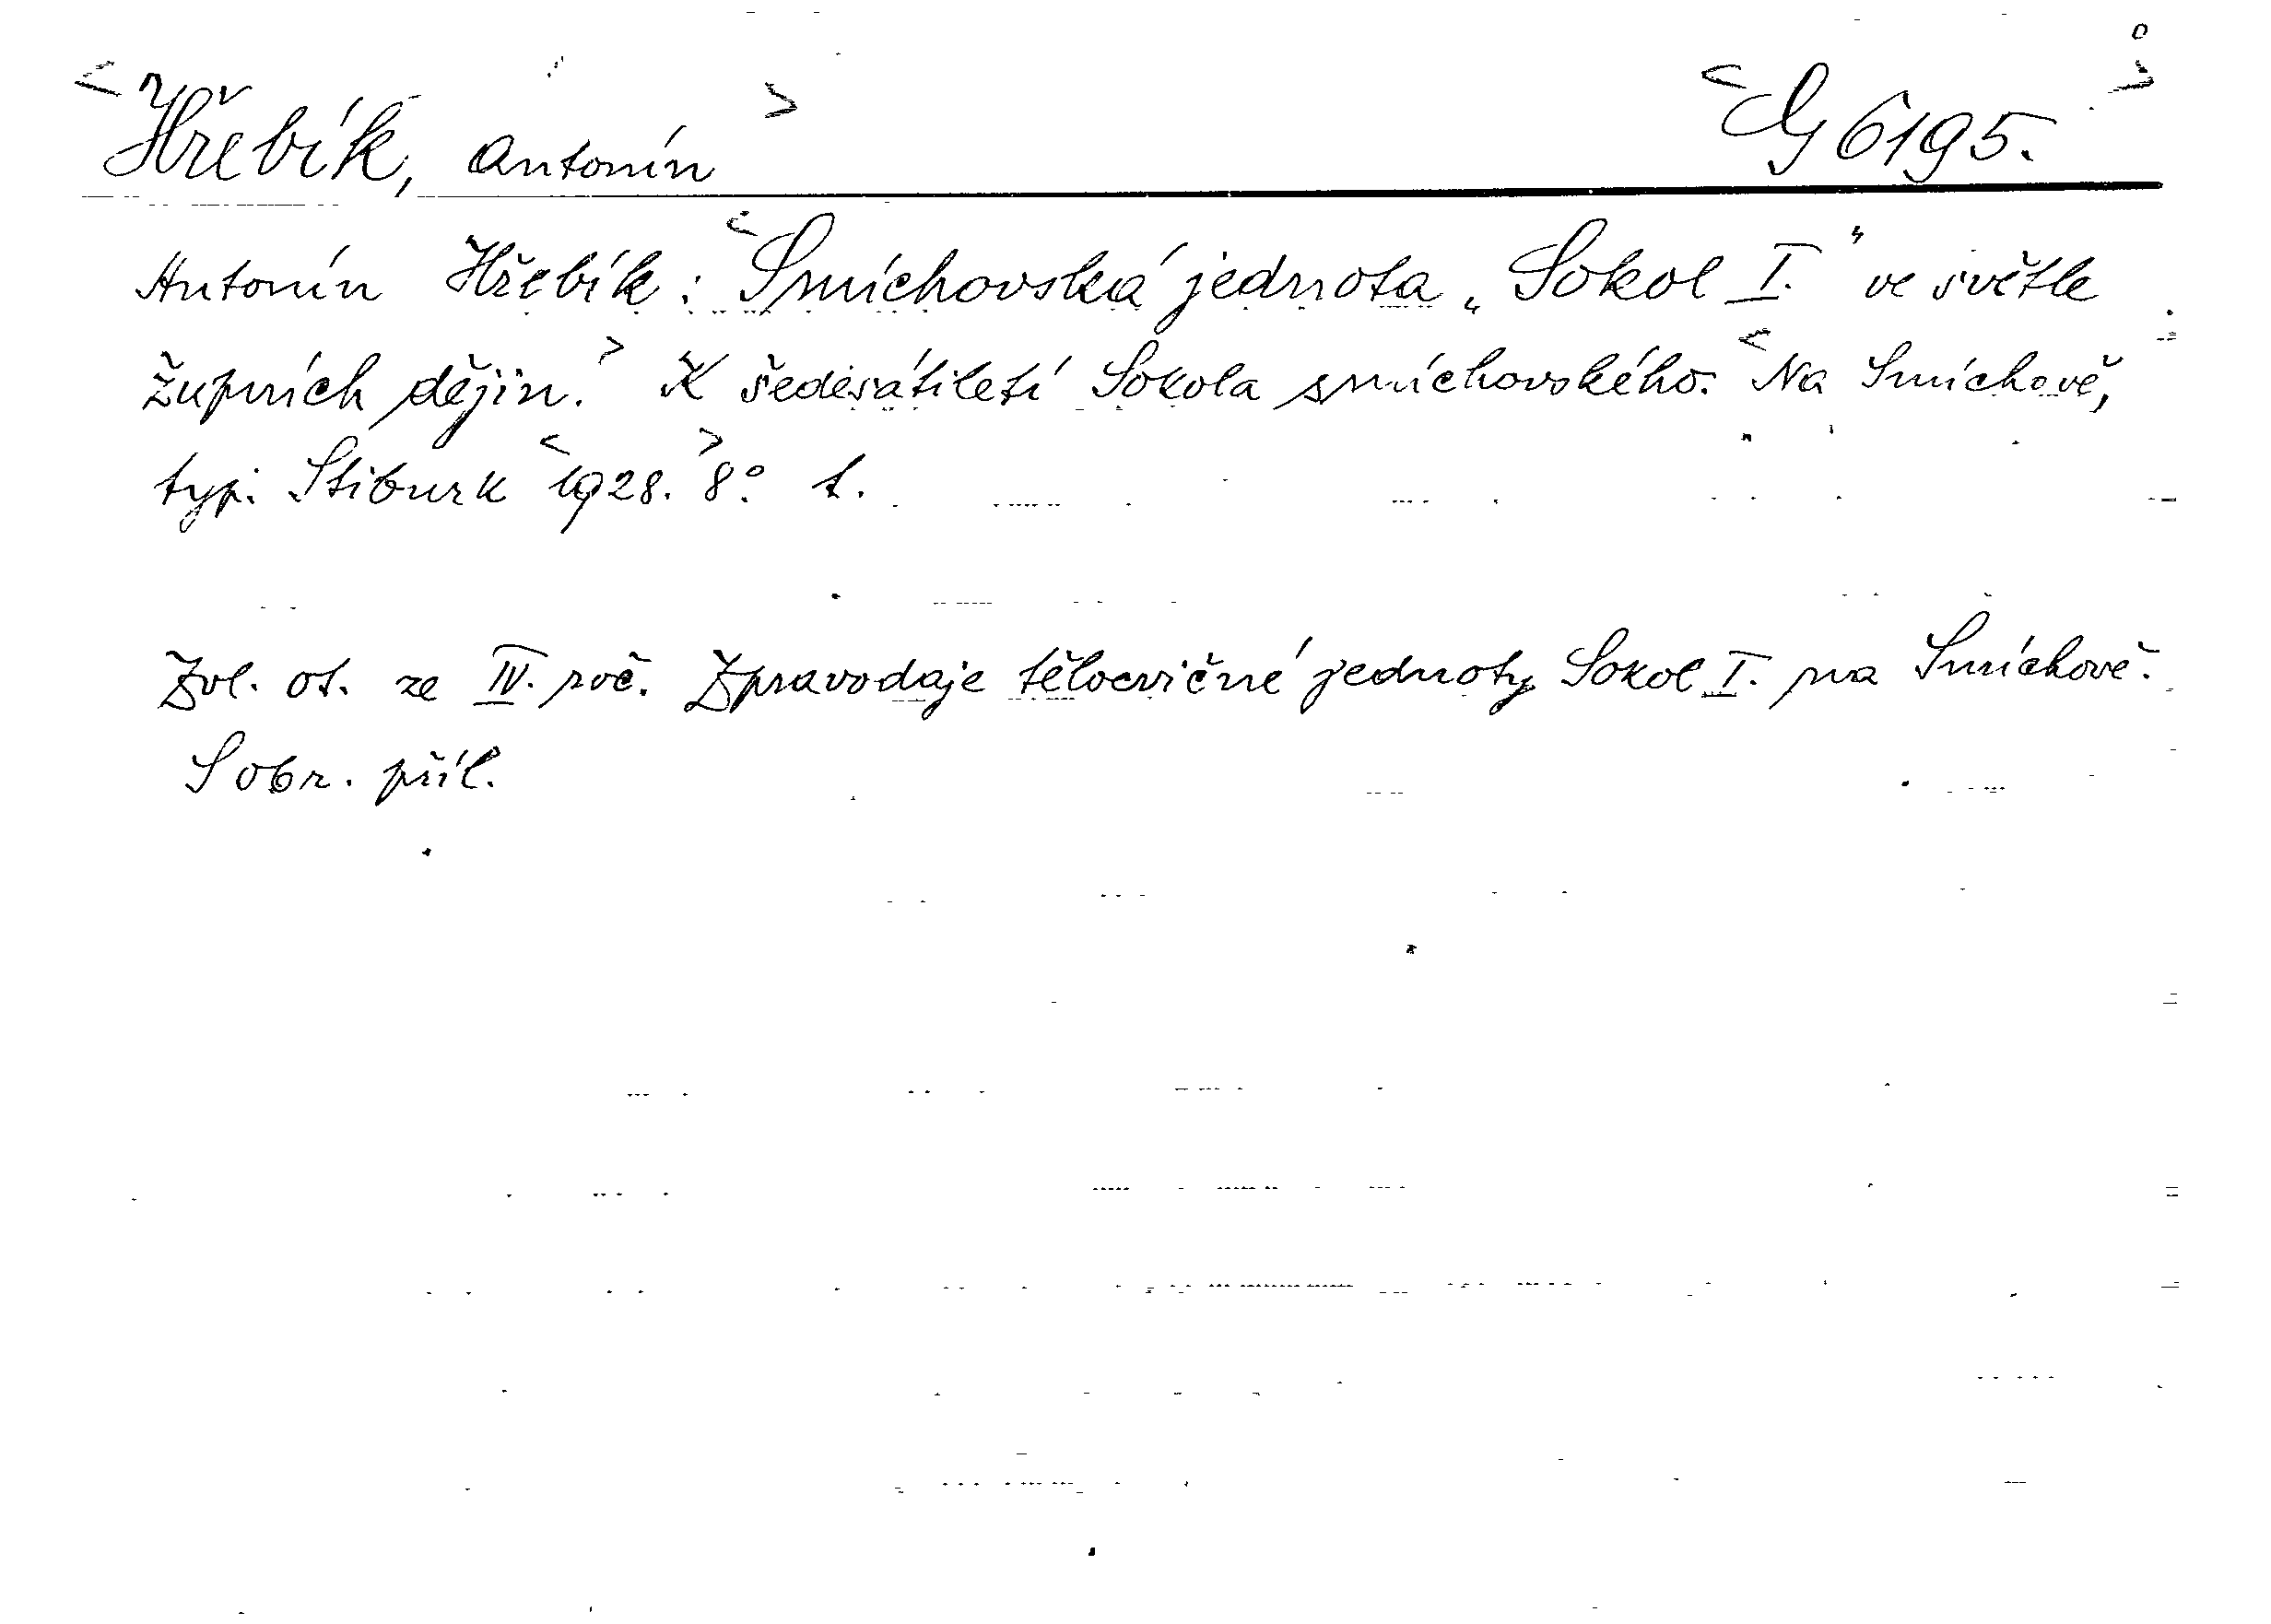 <Hřebík, Antonín> <G 6195.>
Antonín Hřebík: <Smíchovská jednota „Sokol I.“ ve světle
župních dějin.> K šedesátiletí Sokola smíchovského. <Na Smíchově,
typ. Stiburk <1928.> 8° t.
Zvl. ot. ze IV. roč. Zpravodaje tělocvičné jednoty Sokol I. na Smíchově.
S obr. příl.